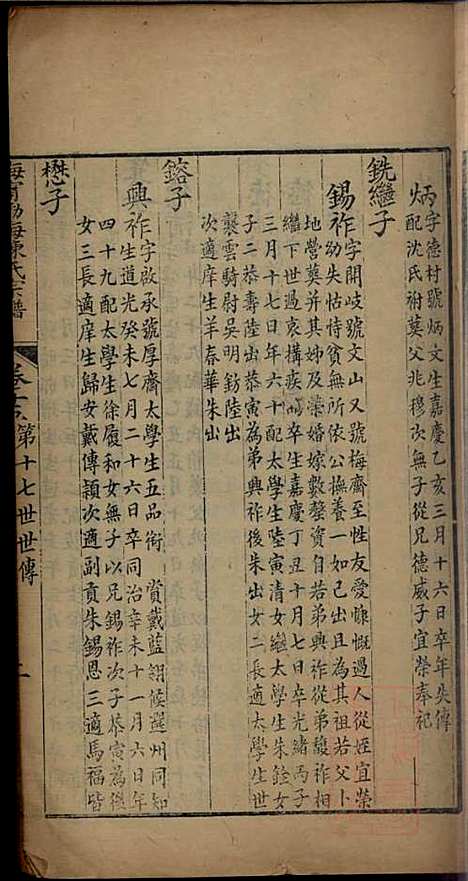 炳字德村號炳文生嘉慶乙亥三月十六日卒年失傳
配沈氏祔葬父兆穆次無子從兄德威子宜榮奉祀
銑繼子
錫祚字開歧號文山又號梅齋至性友愛慷慨過人從姪宜榮
幼失怙恃貧無所依公撫養一如己出且為其祖若父卜
地營葬并其姊及荣婚嫁數罄資自若弟興祚從弟馥祚相
繼下世過哀構疾 卒生嘉慶丁丑十月七日卒光緒丙子
三月十七日年六十配太學生陸寅清女繼太學生朱錢女
子二恭壽陸出恭寅為弟興祚後朱出女二長適太學生世
襲雲騎尉吳明鈁陸出
次適庠生羊春華朱出
鎔子
興祚字啟承號厚齋太學生五品銜 賞戴藍翎候選州同知
生道光癸未七月二十六日卒同治辛未十一月六日年
四十九配太學生徐履和女無子以兄錫祚次子恭寅為後
女三長適庠生歸安戴傳穎次適副貢朱錫恩三適馬福皆
懋子
海寧渤海陳氏宗譜
第十七世世傳